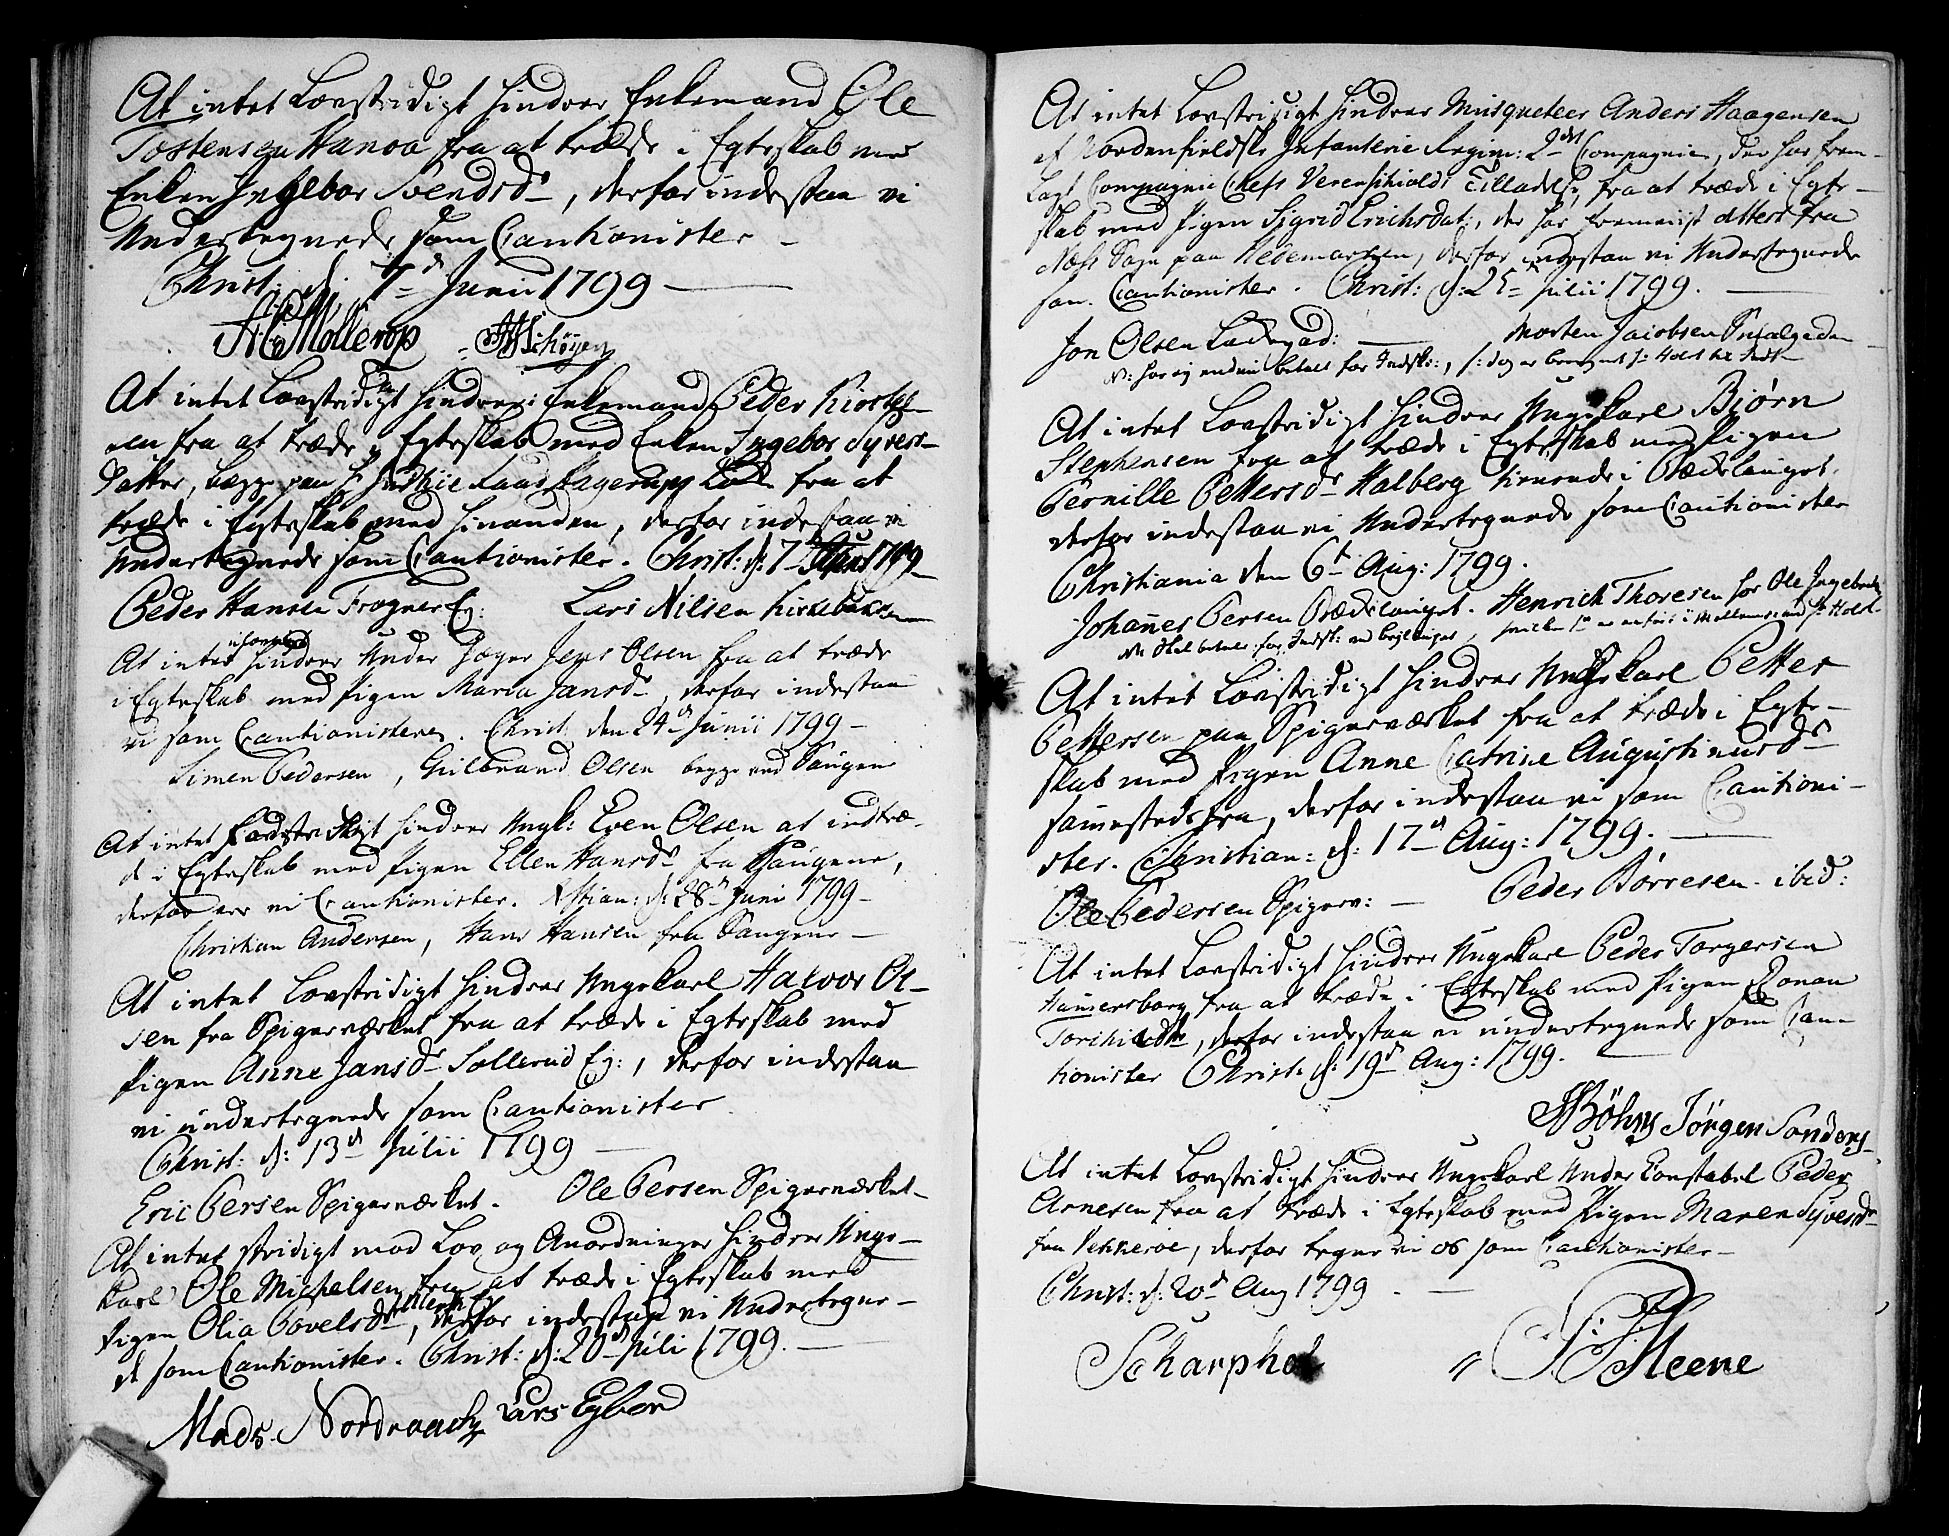 At intet Lovstridigt hindrer Enkemand Ole
Tostensen Hanoa fra at træde i Egteskab med
Enken Ingebor Svendsdr, derfor indestaa vi
Undertegnede som Cautionister
Christ: d: 7d Junii 1799
Møllerop Schøyen
At intet Lovstridigt hindrer Enkemand Peder
fra at træde i Egteskab med Enken Ingebor Syvers-
datter, begge paa fra at
træde i Egteskab med hinanden, derfor indestaa vi
Undertegnede som Cautionister. Christ: d: 7 1799
Peder Hansen Frogner Eg: Lars Nilsen
At intet hindrer Under Jæger Jens Olsen fra at træde
i Egteskab med Pigen Maria Jansdr, derfor indestaa
vi som Cautionister. Christ. den 24d Junii 1799
Simen Pedersen, Gulbrand Olsen begge ved Saugene
At intet hindrer Ungk: Even Olsen at indtræ-
de i Egteskab med Pigen Ellen Hansdr fra Saugene,
derfor ere vi Cautionister. d: 28d Juni 1799
Christian Andersen, Hans Hansen fra Saugene
At intet Lovstridigt hindrer Ungekarl Halvor Ol-
sen fra Spigerværket fra at træde i Egteskab med
Pigen Anne Jansdr Sollerud Eg:, derfor indestaa
vi undertegnede som Cautionister
Christ: d: 13d Julii 1799
Eric Persen Spigerværket. Ole Persen Spigerværket
At intet stridigt mod Lov og Anordninger hindrer Unge-
karl Ole Michelsen fra at træde i Egteskab med
Pigen Olia Povelsdr, derfor indestaa vi Undertegne-
de som Cautionister. Christ: d: 20d Juli 1799.
Mads Nordraach Lars
At intet Lovstridigt hindrer Musqueteer Anders Haagensen
af Nordenfieldske Infanterie Regim: 2det Compagnie, der har frem-
lagt Compagnie Chefs Tilladelse, fra at træde i Egte-
skab med Pigen Sigrid Erichsdat:, der har fremviist Attest fra
Næss Sogn paa Hedemarken, derfor indestaa vi Undertegnede
som Cautionister. Christ: d: 25 Julii 1799.
Jon Olsen Morten Jacobsen
At intet Lovstridigt hindrer Ungekarl Bjørn
Stephensen fra at træde i Egteskab med Pigen
Pernille Pettersdr Halberg tienende i
derfor indestaa vi Undertegnede som Cautionister
Christiania den 6t Aug: 1799.
Johannes Persen Henrich Thoresen for Ole
At intet Lovstridigt hindrer Ungekarl Petter
Pettersen paa Spigerværket fra at træde i Egte-
skab med Pigen Anne Catrine Augustinusdr
sammestedsfra, derfor indestaa vi som Cautioni-
ster. Christian: d: 17d Aug: 1799.
Ole Pedersen Spigerv: Peder Børresen ibid:
At intet Lovstridigt hindrer Ungekarl Peder Torgersen
fra at træde i Egteskab med Pigen
derfor indestaa vi undertegnede som Cau-
tionister Christ. d: 19d Aug: 1799.
Jörgen
At intet Lovstridigt hindrer Ungekarl Under Constabel Peder
Arnesen fra at træde i Egteskab med Pigen Maren Syversdr
fra derfor tegne vi os som Cautionister
Christ: d: 20d Aug 1799
Heene